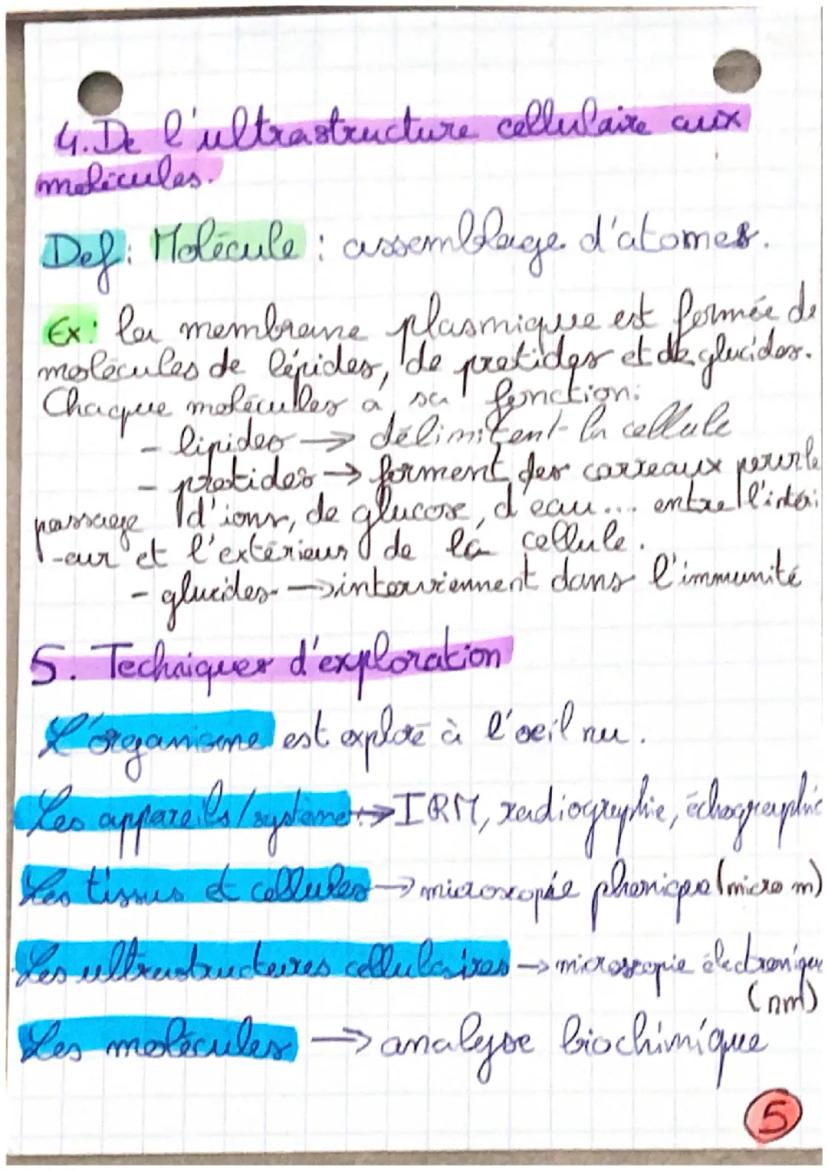 4. De l'ultrastructure cellulaire aux
molécules.
Def: Molécule : assemblage d'atomes.
Ex: la membrane plasmique est formée de
molécules de lipides, de protides et de glucides.
Chaque molécules a sa fonction:
- lipides → délimitent la cellule
- protides → forment des carreaux pour le
passage d'ions, de glucose, d'eau... entre l'intéri
-eur et l'extérieur de la cellule.
- glucides → interviennent dans l'immunité
5. Techniques d'exploration
L'organisme est exploré à l'oeil nu.
Les appareils/système → IRM, radiographie, échographie
Les tissus et cellules → microscopie (micro m)
Les ultrastructures cellulaires → microscopie électronique
(nm)
Les molécules → analyse biochimique
5